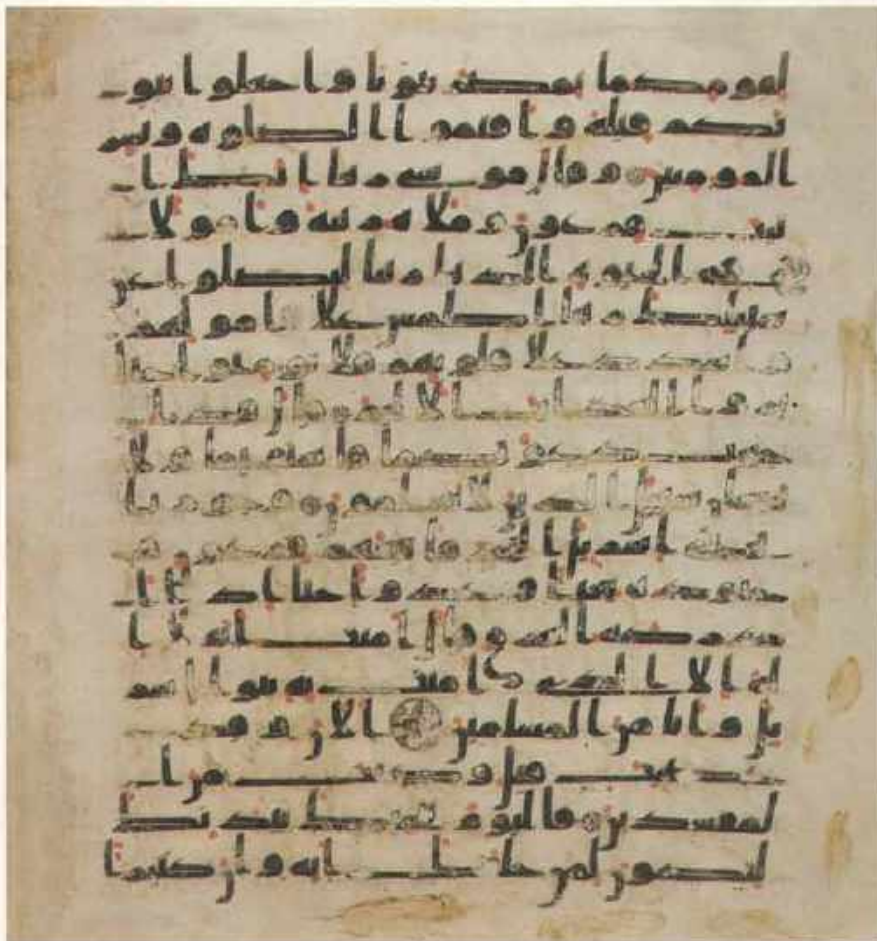 لقومكما بمصر بيوتا واجعلوا بيو
تكم قبلة واقيموا الصلوة وبشر
المومنين وقال موسى ربنا انك ا
تيت فرعون وملاه زينة وامولا
في الحيوة الدنيا ربنا ليضلوا عن
سبيلك ربنا اطمس على امولهم
واشدد على قلوبهم فلا يومنوا حتى
يروا العذاب الاليم قال قد ا
جيبت دعوتكما فاستقيما ولا
تتبعان سبيل الذين لا يعلمون وجوزنا
ببني اسريل البحر فاتبعهم فرعون و
جنوده بغيا وعدوا حتى اذا ا
دركه الغرق قال امنت انه لا
اله الا الذي امنت به بنوا اسر
يل وانا من المسلمين الان وقد
عصيت قبل وكنت من ا
لمفسدين فاليوم ننجيك ببدنك
لتكون لمن خلفك اية وان كثيرا